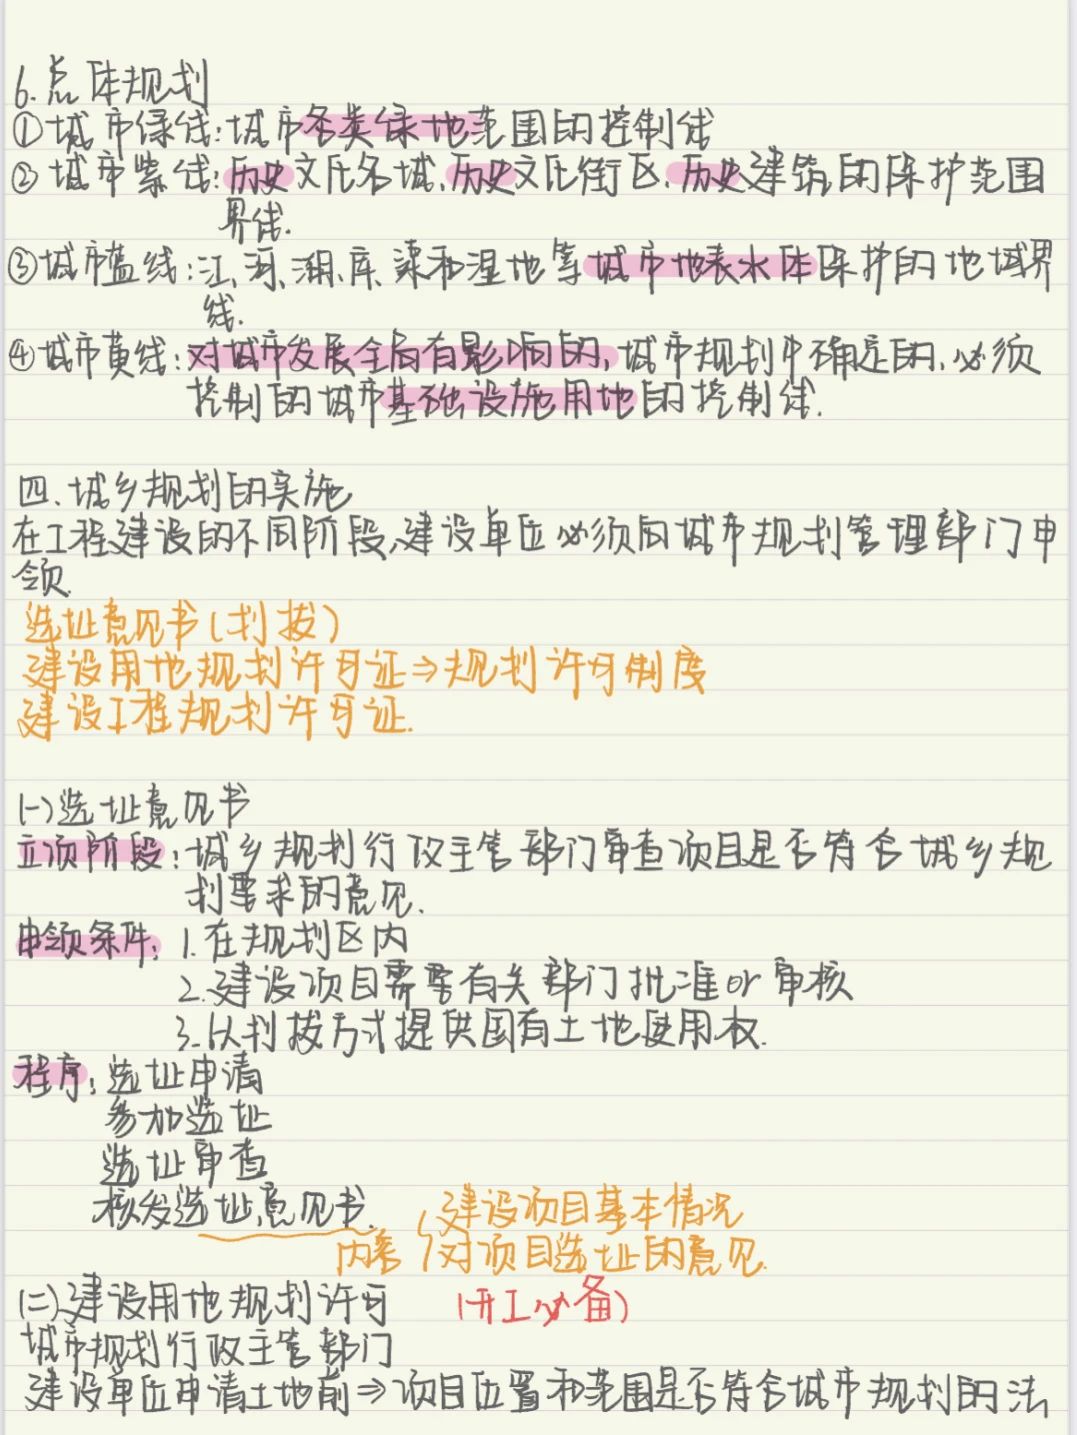 6.总体规划
①城市绿线:城市各类绿地范围的控制线
②城市紫线:历史文化名城、历史文化街区、历史建筑的保护范围
界线.
③城市蓝线:江、河、湖、库、渠和湿地等城市地表水体保护的地域界
线.
④城市黄线:对城市发展全局有影响的,城市规划中确定的,必须
控制的城市基础设施用地的控制线.
四.城乡规划的实施
在工程建设的不同阶段,建设单位必须向城市规划管理部门申
领.
选址意见书(划拔)
建设用地规划许可证⇒规划许可制度
建设工程规划许可证.
(一)选址意见书
立项阶段:城乡规划行政主管部门审查项目是否符合城乡规
划要求的意见.
申领条件:1.在规划区内
2.建设项目需要有关部门批准or审核
3.以划拔方式提供国有土地使用权.
程序:选址申请
参加选址
选址审查
核发选址意见书.
内容{建设项目基本情况
对项目选址的意见.
(二)建设用地规划许可 (开工必备)
城市规划行政主管部门
建设单位申请土地前⇒项目位置和范围是否符合城市规划的法